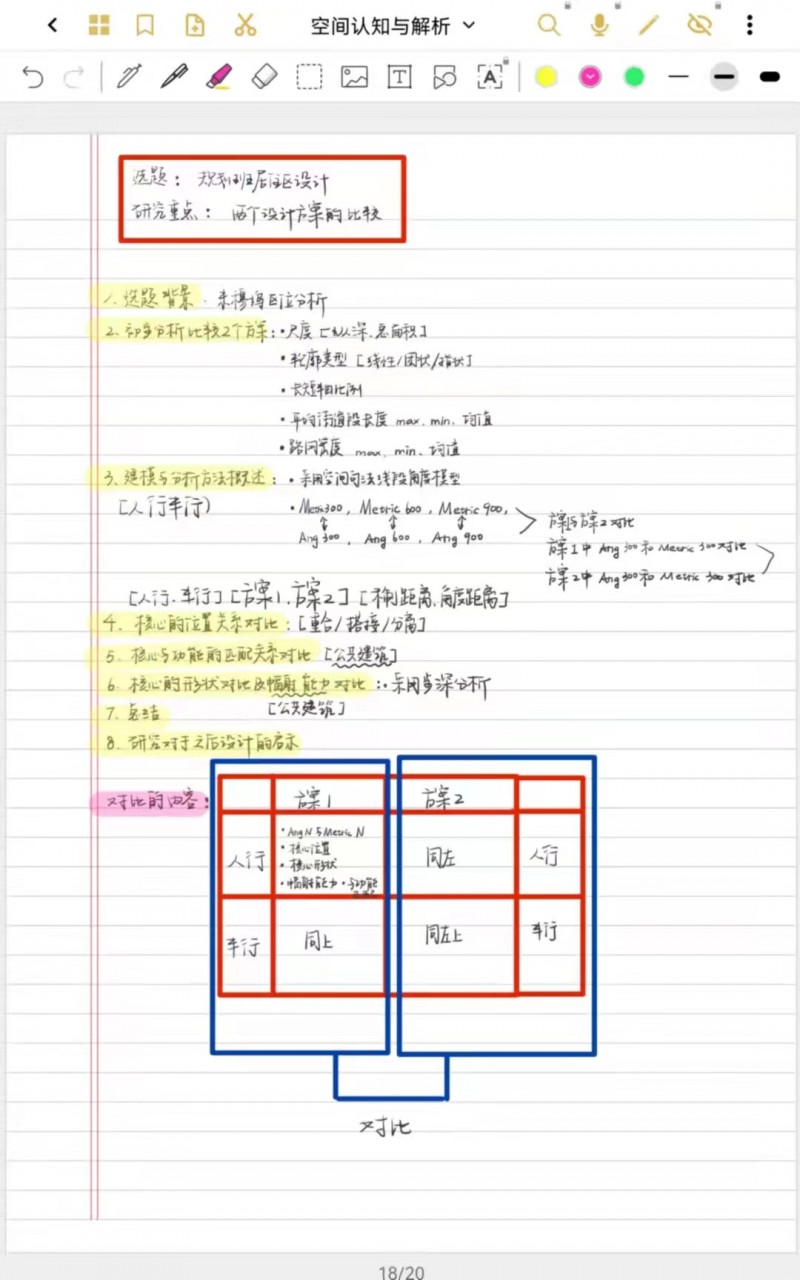 空间认知与解析
T
A
选题： 规划班居住区设计
研究重点： 两个设计方案的比较
1. 选题背景. 区位分析
2. 初步分析比较2个方案：• 尺度 [纵深、总面积]
• 轮廓类型 [线性/团状/指状]
• 长短轴比例
• 平均街道段长度 max. min. 均值
• 路网密度 max. min. 均值
3. 建模与分析方法概述： • 采用空间句法线段角度模型
[人行车行)
• Metric300, Metric 600, Metric 900,
Ang 300, Ang 600, Ang 900
方案1与方案2对比
方案1中 Ang 300和 Metric 300对比
方案2中 Ang300和 Metric 300对比
[人行、车行] [方案1、方案2] [米制距离、角度距离]
4. 核心的位置关系对比：[重合/搭接/分离]
5. 核心与功能的匹配关系对比 [公共建筑]
6. 核心的形状对比及幅射能力对比：• 采用步深分析
7. 总结 [公共建筑]
8. 研究对于之后设计的启示
对比的内容：
方案1 方案2
人行
• Ang N 与 Metric N
• 核心位置
• 核心形状
• 幅射能力 • 与功能
同左 人行
车行 同上 同左上 车行
对比
18/20